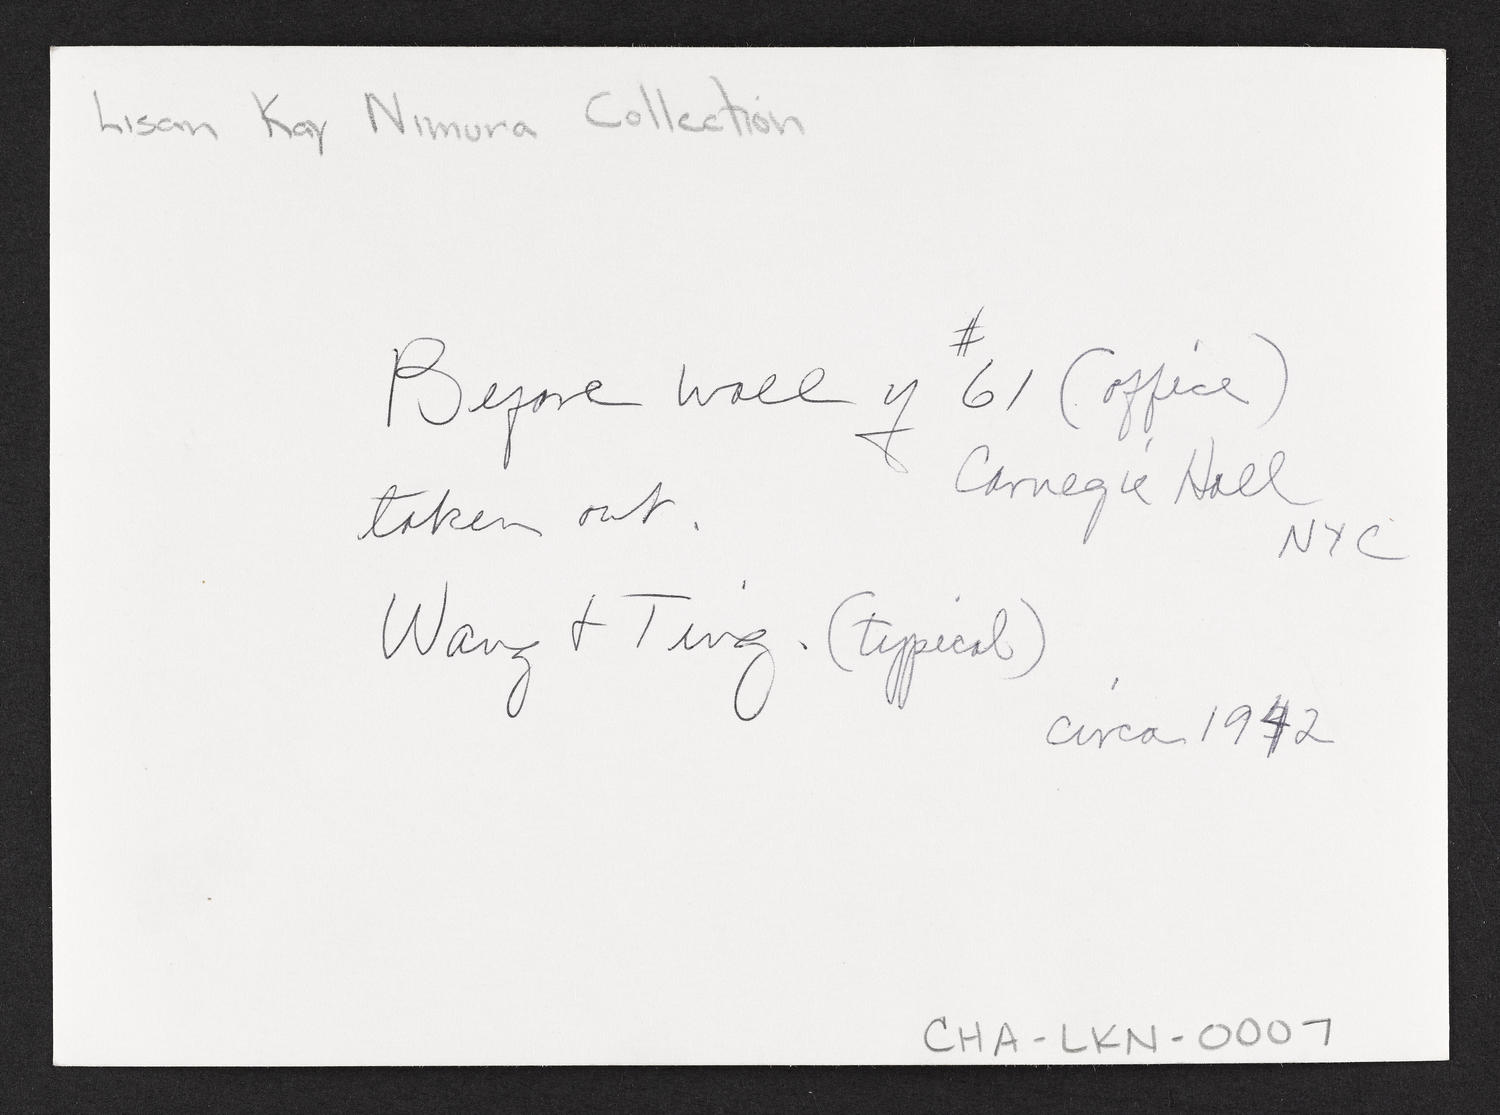 Lisan Kay Nimura Collection
Before wall of #61 (office)
Carnegie Hall
NYC
taken out.
Wang & Ting. (typical)
circa 1942
CHA-LKN-0007